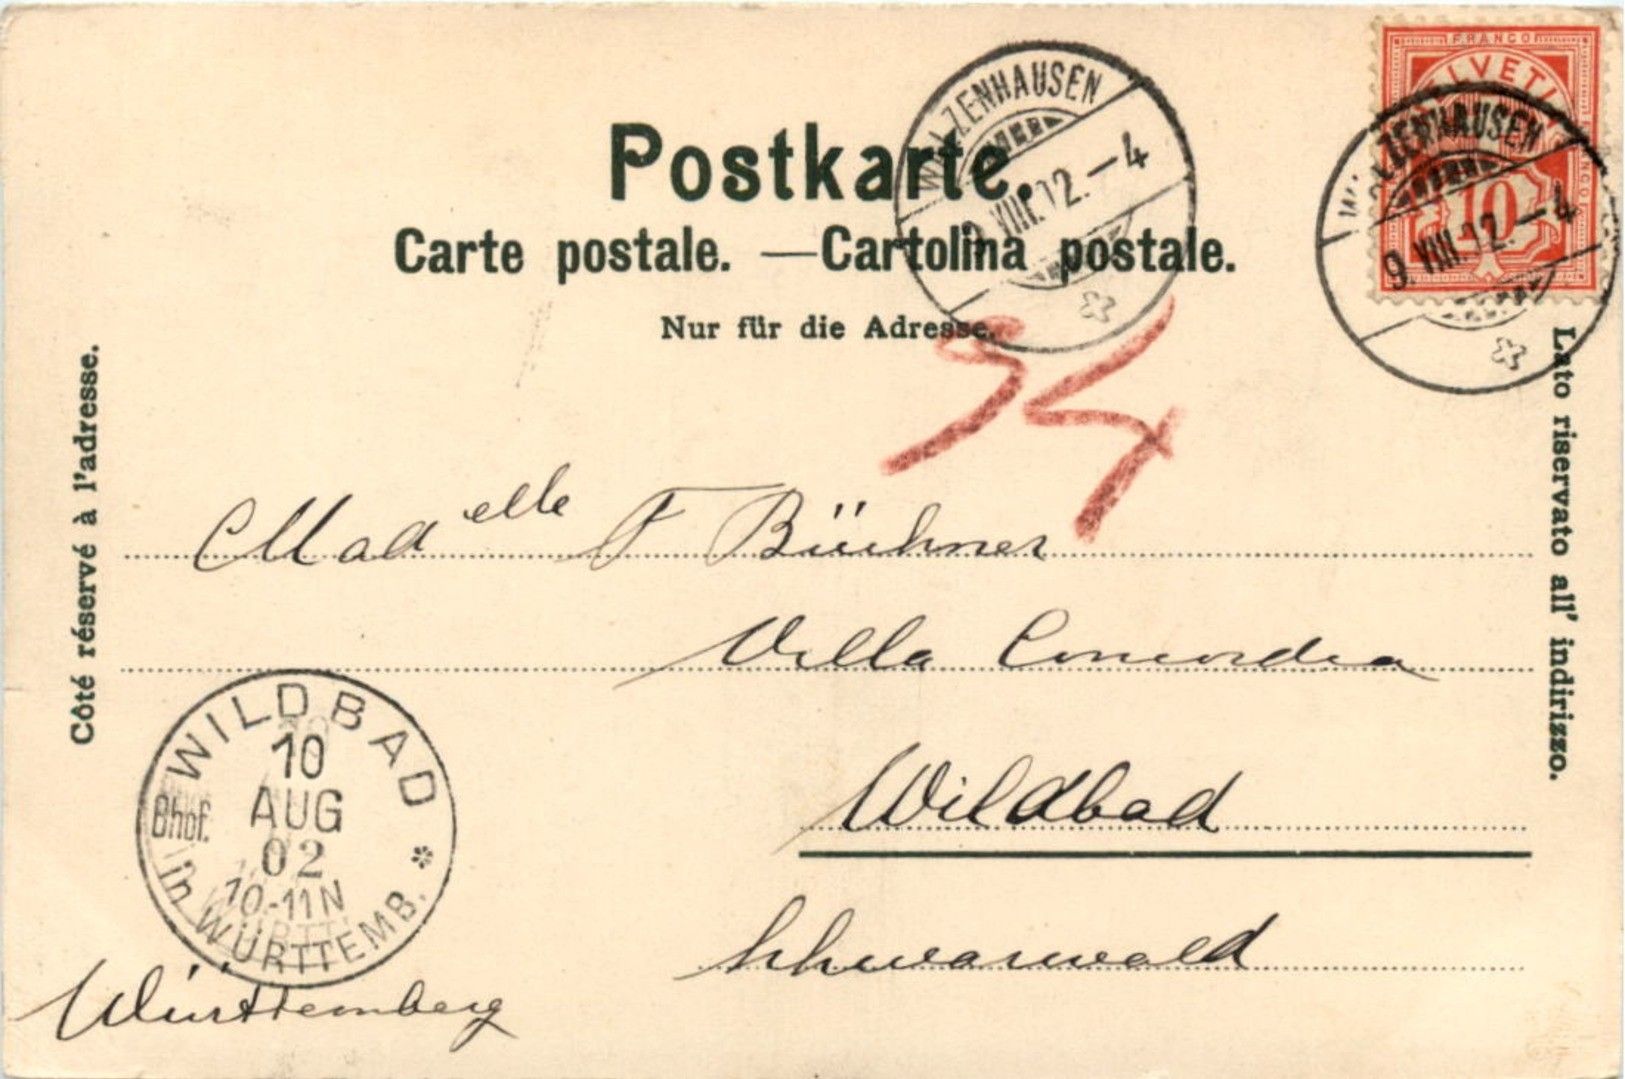 Postkarte.
Carte postale. — Cartolina postale.
Nur für die Adresse.
Côté réservé à l'adresse.
Lato riservato all' indirizzo.
FRANCO
HELVETIA
10
WALZENHAUSEN
9. VIII. 02. – 4
WALZENHAUSEN
9. VIII. 02. – 4
Madelle F Büchner
Villa Concordia
Wildbad
Schwarzwald
Württemberg
WILDBAD
10
AUG
02
10-11N
Bhof.
in WÜRTTEMB.